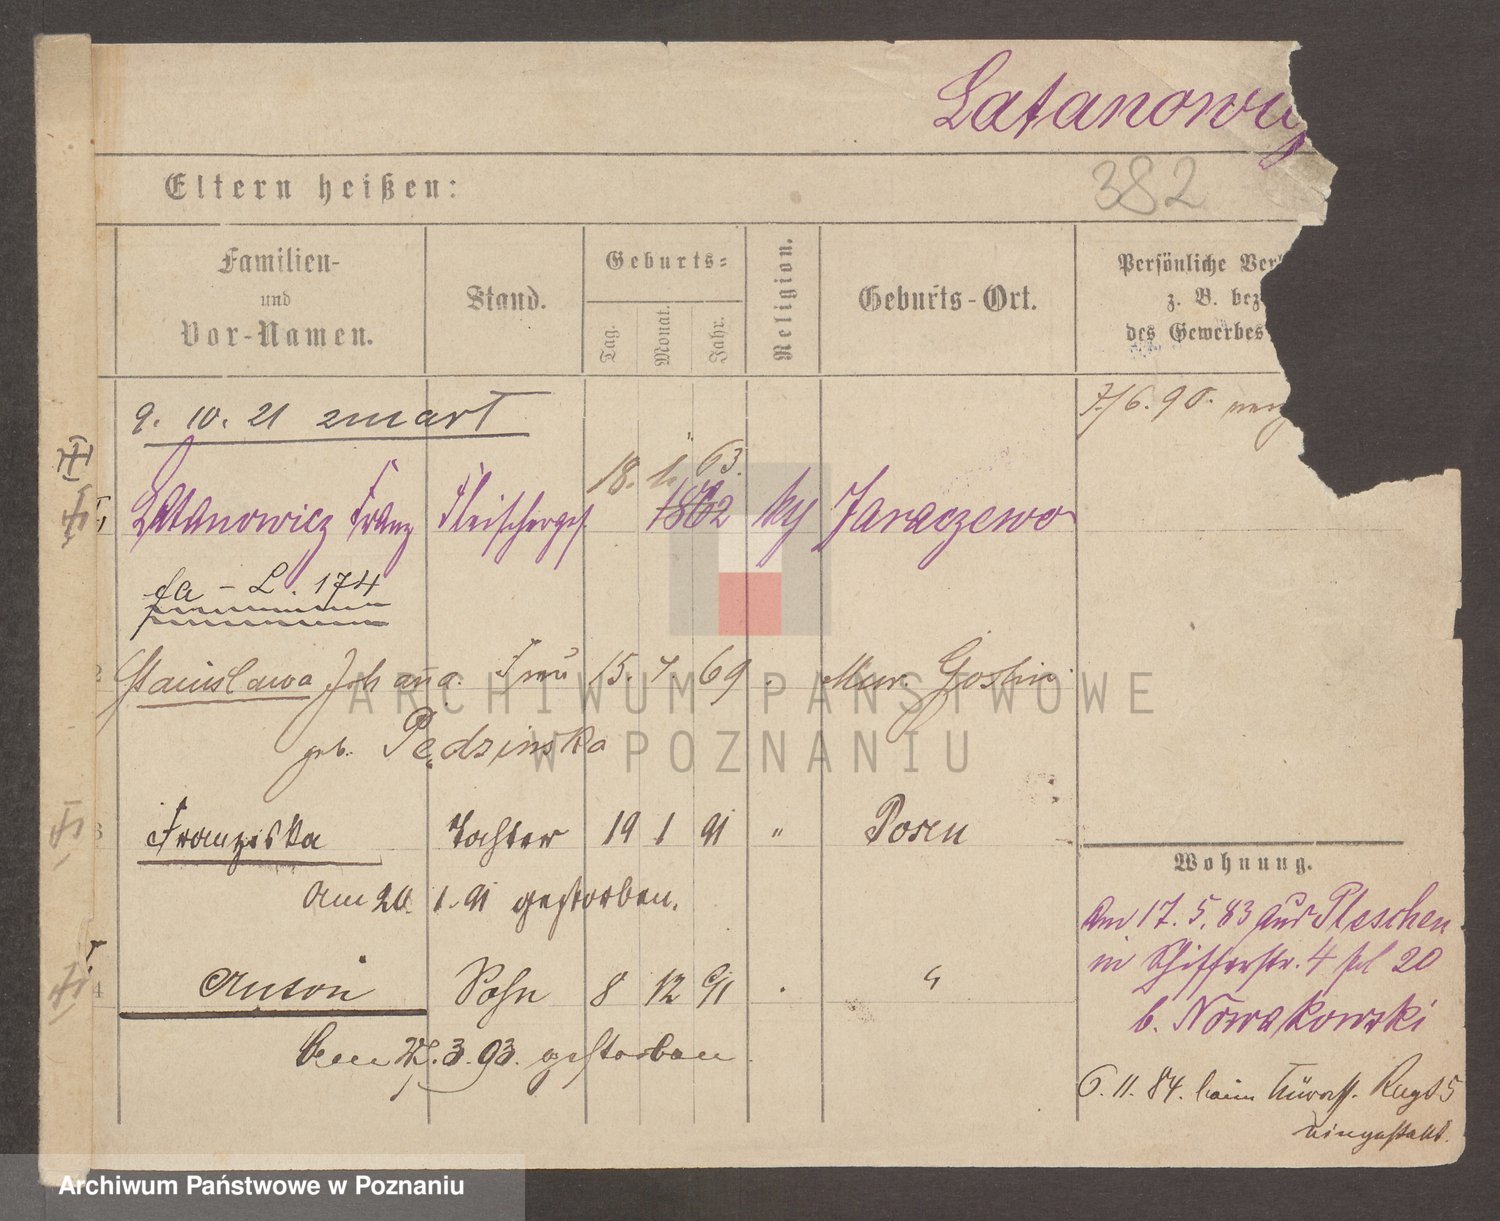 Latanowicz
382
Eltern heißen:
Familien-
und
Vor-Namen.
Stand.
Geburts-
Tag.
Monat.
Jahr.
Religion.
Geburts-Ort.
Persönliche Ver
z. B. bez
des Gewerbes
9. 10. 21 zmarł
7/6. 90.
18. 1. 63.
1 Latanowicz Franz Fleischerges. 1862 ky Jaraczewo
fa - L. 174
2 Stanislawa Johanna. Frau 15. 7. 69 Mur. Goslin
geb. Pędzinska
3 Franziska Tochter 19 1 91 " Posen
am 20. 1. 91 gestorben.
4 Anton Sohn 8 12 91 "
3. 93. gestorben
Wohnung.
Am 17. 5. 83 aus Pleschen
in Schifferstr. 4 20
b. Nowakowski
6. 11. 84. beim Rgt 5
eingestellt.
ARCHIWUM PAŃSTWOWE
W POZNANIU
Archiwum Państwowe w Poznaniu